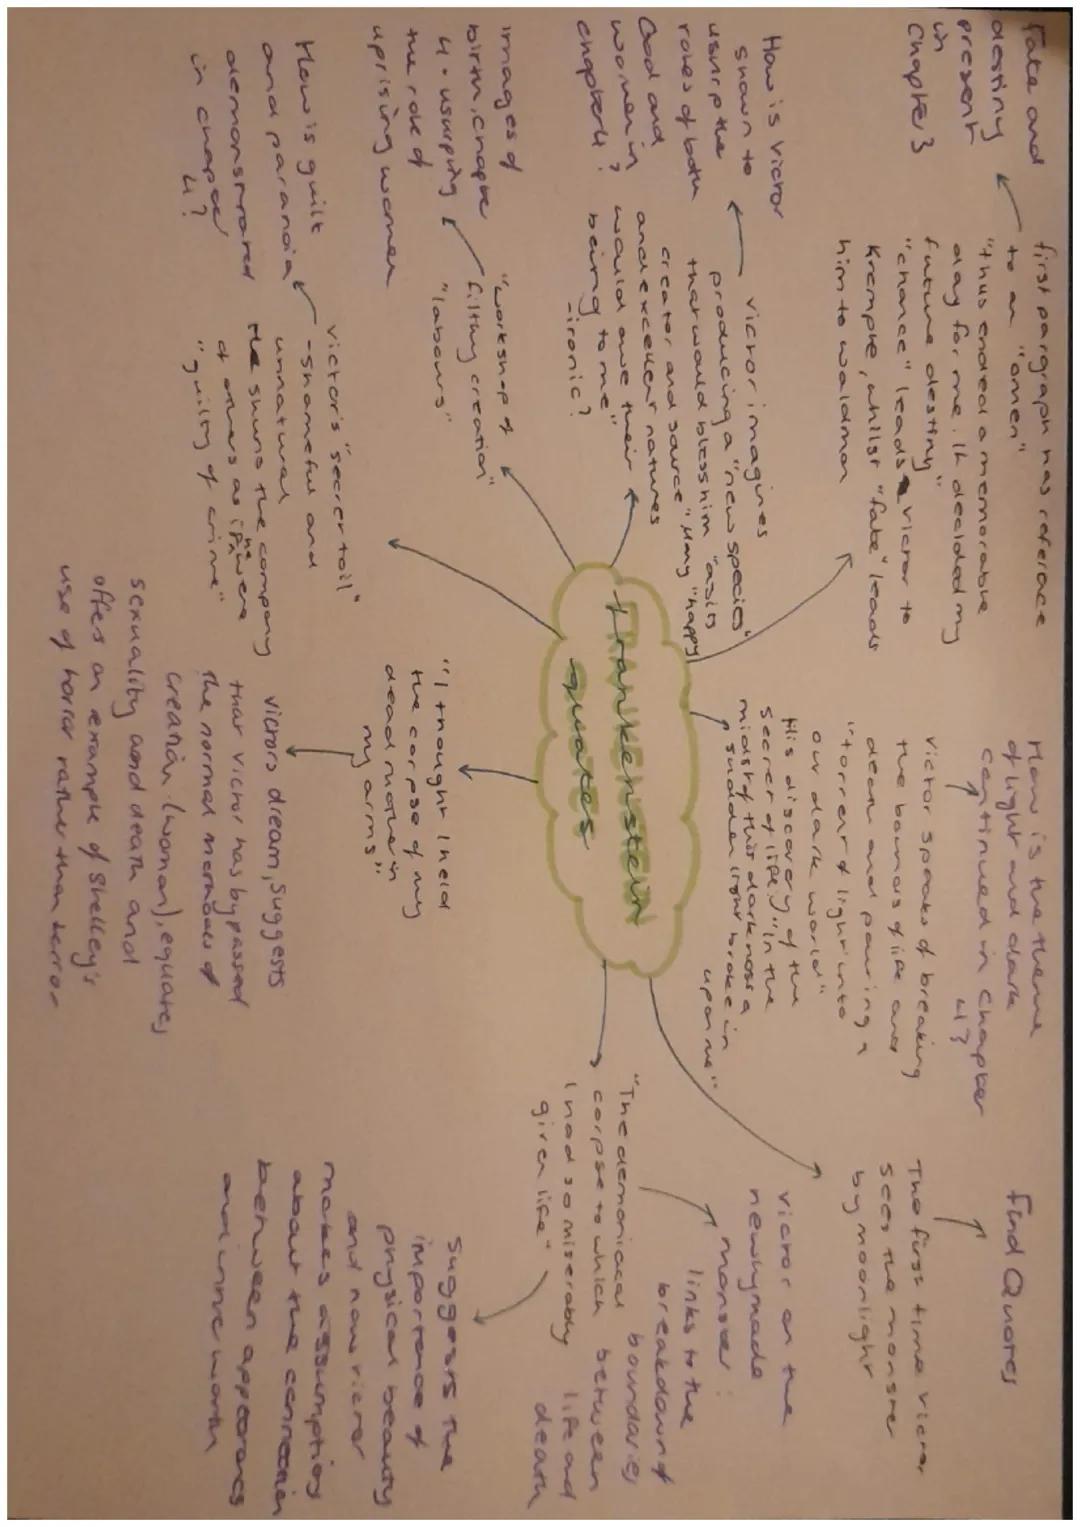 Fate and
destiny
present
in
Chapter 3
first pargraph has referece
to an "omen"
"thus ended a memorable
day for me. It decided my
future destiny"
"chance" leads victor to
Krempe, whilst "fate" leads
him to waldman
How is the theme
of light and dark
continued in Chapter
4?
victor speaks of breaking
the bounds of life and
death and pouring a
"torrent of light into
our dark world"
His discovery of the
secret of life, "in the
midst of this darkness a
sudden light broke in
upon me"
Find Quotes
The first time victor
sees the monster
by moonlight
How is victor
shown to
usurp the
roles of both
God and
women in
chapter 4?
victor imagines
producing a "new species"
that would bless him "as its
creator and source" Many "happy
and excellent natures
would owe their
being to me"
-ironic?
Frankenstein
quotes
victor on the
newly made
monster:
"The demoniacal
corpse to which
I had so miserably
given life"
links to the
breakdown of
boundaries
between
life and
death
images of
birth, chapter
4. usurping
the role of
uprising women
"workshop of
filthy creation"
"labours"
"I thought I held
the corpse of my
dead mother in
my arms"
suggests the
importance of
physical beauty
and how victor
makes assumptions
about the connection
between appearances
and inner worth
How is guilt
and paranoia
demonstrated
in chapter
4?
victor's "secret toil"
-shameful and
unnatural
He shuns the company
of others as if he were
"guilty of crime"
victors dream, suggests
that victor has bypassed
the normal methods of
creation (woman), equates
sexuality and death and
offers an example of Shelley's
use of horror rather than terror